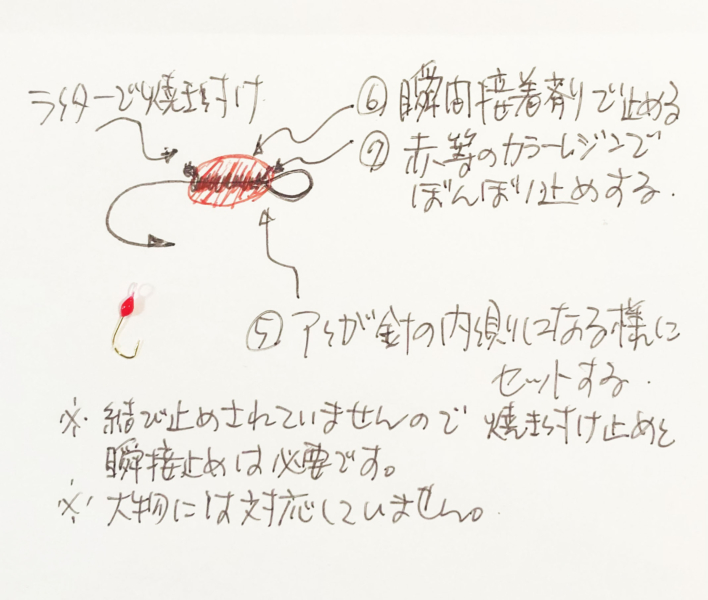 ライターで焼き付け
⑥ 瞬間接着剤で止める
⑦ 赤等のカラーレジンで
ぼんぼり止めする.
⑤ アイが針の内側になる様に
セットする.
※ 結び止めされていませんので 焼き付け止めと
瞬接止めは必要です。
※ 大物には対応していません。